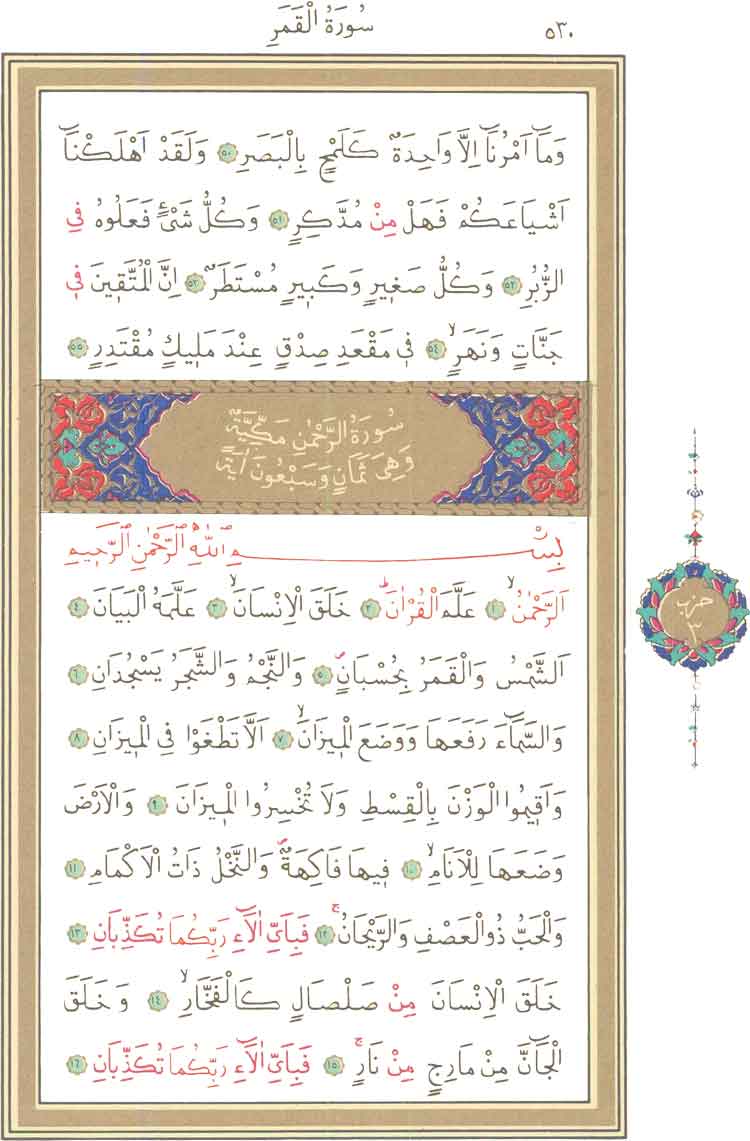 ٥٣٠
سُورَةُ الْقَمَرِ
وَمَٓا اَمْرُنَٓا اِلَّا وَاحِدَةٌ كَلَمْحٍ بِالْبَصَرِ ٥٠ وَلَقَدْ اَهْلَكْنَٓا
اَشْيَاعَكُمْ فَهَلْ مِنْ مُدَّكِرٍ ٥١ وَكُلُّ شَيْءٍ فَعَلُوهُ فِي
الزُّبُرِ ٥٢ وَكُلُّ صَغٖيرٍ وَكَبٖيرٍ مُسْتَطَرٌ ٥٣ اِنَّ الْمُتَّقٖينَ فٖي
جَنَّاتٍ وَنَهَرٍۙ ٥٤ فٖي مَقْعَدِ صِدْقٍ عِنْدَ مَلٖيكٍ مُقْتَدِرٍ ٥٥
سُورَةُ الرَّحْمٰنِ مَكِّيَّةٌ
وَهِيَ ثَمَانٍ وَسَبْعُونَ اٰيَةً
بِسْمِ اللّٰهِ الرَّحْمٰنِ الرَّحٖيمِ
اَلرَّحْمٰنُۙ ١ عَلَّمَ الْقُرْاٰنَؕ ٢ خَلَقَ الْاِنْسَانَۙ ٣ عَلَّمَهُ الْبَيَانَ ٤
اَلشَّمْسُ وَالْقَمَرُ بِحُسْبَانٍۖ ٥ وَالنَّجْمُ وَالشَّجَرُ يَسْجُدَانِ ٦
وَالسَّمَٓاءَ رَفَعَهَا وَوَضَعَ الْمٖيزَانَۙ ٧ اَلَّا تَطْغَوْا فِي الْمٖيزَانِ ٨
وَاَقٖيمُوا الْوَزْنَ بِالْقِسْطِ وَلَا تُخْسِرُوا الْمٖيزَانَ ٩ وَالْاَرْضَ
وَضَعَهَا لِلْاَنَامِۙ ١٠ فٖيهَا فَاكِهَةٌۖ وَالنَّخْلُ ذَاتُ الْاَكْمَامِ ١١
وَالْحَبُّ ذُو الْعَصْفِ وَالرَّيْحَانُۚ ١٢ فَبِاَيِّ اٰلَٓاءِ رَبِّكُمَا تُكَذِّبَانِ ١٣
خَلَقَ الْاِنْسَانَ مِنْ صَلْصَالٍ كَالْفَخَّارِۙ ١٤ وَخَلَقَ
الْجَٓانَّ مِنْ مَارِجٍ مِنْ نَارٍۚ ١٥ فَبِاَيِّ اٰلَٓاءِ رَبِّكُمَا تُكَذِّبَانِ ١٦
حزب
٣